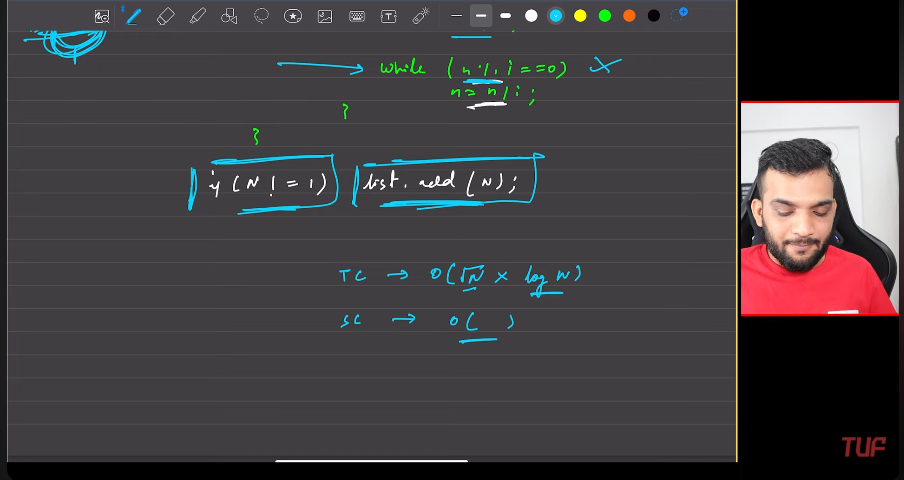 while (n % i == 0)
n = n / i ;
}
}
if (N ! = 1) list. add (N);
TC → O(√N × log N)
SC → O( )
TUF